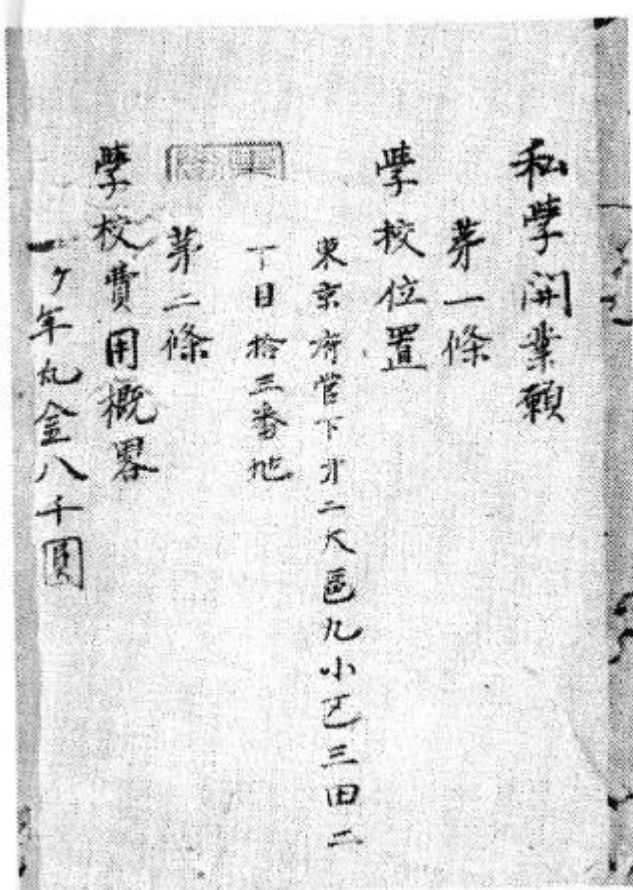 私學開業願
苐一條
學校位置
東京府管下才二大區九小区三田二
丁目拾三番地
苐二條
學校費用概畧
一ヶ年凡金八千圓